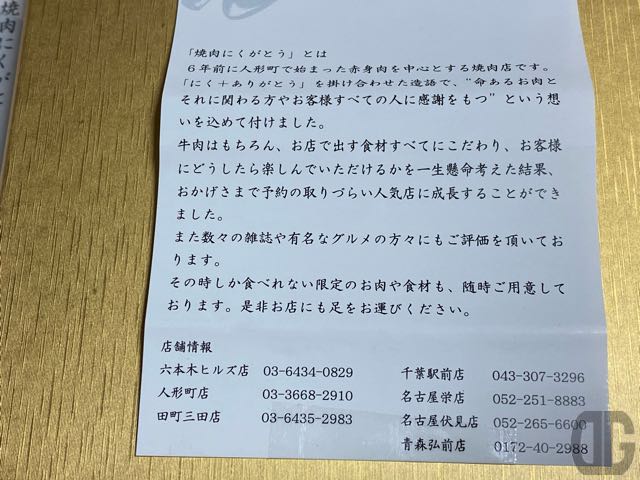 焼肉にくがと
「焼肉にくがとう」とは
６年前に人形町で始まった赤身肉を中心とする焼肉店です。
「にく＋ありがとう」を掛け合わせた造語で、“命あるお肉と
それに関わる方やお客様すべての人に感謝をもつ”という想
いを込めて付けました。
牛肉はもちろん、お店で出す食材すべてにこだわり、お客様
にどうしたら楽しんでいただけるかを一生懸命考えた結果、
おかげさまで予約の取りづらい人気店に成長することができ
ました。
また数々の雑誌や有名なグルメの方々にもご評価を頂いてお
ります。
その時しか食べれない限定のお肉や食材も、随時ご用意して
おります。是非お店にも足をお運びください。
店舗情報
六本木ヒルズ店 03-6434-0829
人形町店 03-3668-2910
田町三田店 03-6435-2983
千葉駅前店 043-307-3296
名古屋栄店 052-251-8883
名古屋伏見店 052-265-6600
青森弘前店 0172-40-2988
DG